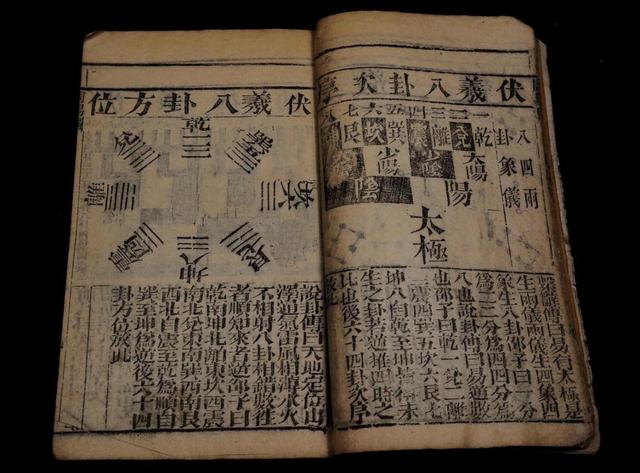 伏羲八卦次
八卦
四象
兩儀
一乾
二兌
三離
四震
五巽
六坎
七艮
八
太陽
少陰
少陽
陽
陰
太極
繫辭傳曰易有太極是
生兩儀兩儀生四象四
象生八卦邵子曰一分
爲二二分爲四四分爲
八也說卦傳曰易逆數
也邵子曰乾一兌二離
三震四巽五坎六艮七
坤八自乾至坤皆得未
生之卦若逆推四時之
比也後六十四卦次序
放此
伏羲八卦方位
乾三
兌二
離三
坎六
坤八
說卦傳曰天地定位山
澤通氣雷風相薄水火
不相射八卦相錯數往
者順知來者逆邵子曰
乾南坤北離東坎西震
東北兌東南巽西南艮
西北自震至乾爲順自
巽至坤爲逆後六十四
卦方位放此